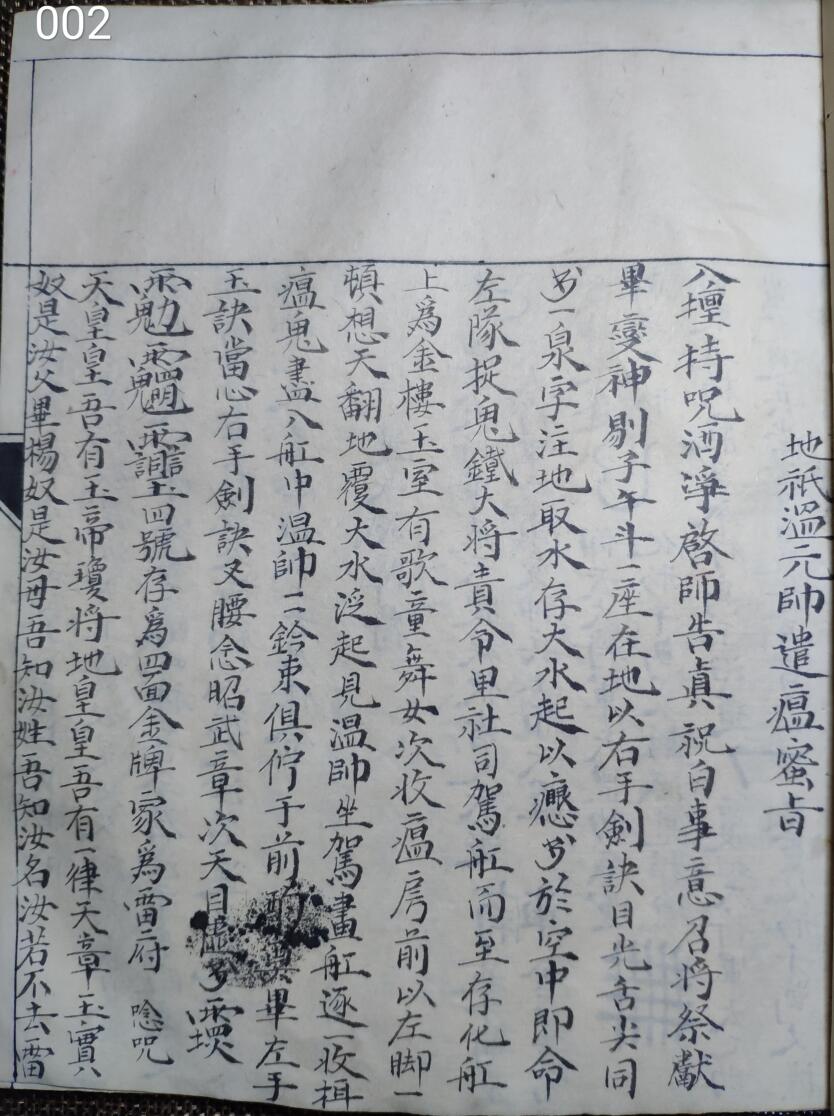 002
地祇溫元帥遣瘟蜜旨
入壇持咒洒淨啓師告眞祝白事意召將祭獻
畢變神剔子午斗一座在地以右手劍訣目光舌尖同
一泉字注地取水存大水起以於空中即命
左隊捉鬼鐵大將責令里社司駕舡而至存化舡
上爲金樓玉室有歌童舞女次收瘟房前以左脚一
頓想天翻地覆大水泛起見溫帥坐駕畫舡逐一收
瘟鬼盡入舡中溫帥二鈴束俱佇于前畢左手
玉訣當心右手劍訣叉腰念昭武章次天目
四號存爲四面金牌家爲雷府 唸咒
天皇皇吾有玉帝瓊將地皇皇吾有一律天章玉寳
奴是汝父畢楊奴是汝母吾知汝姓吾知汝名汝若不去雷